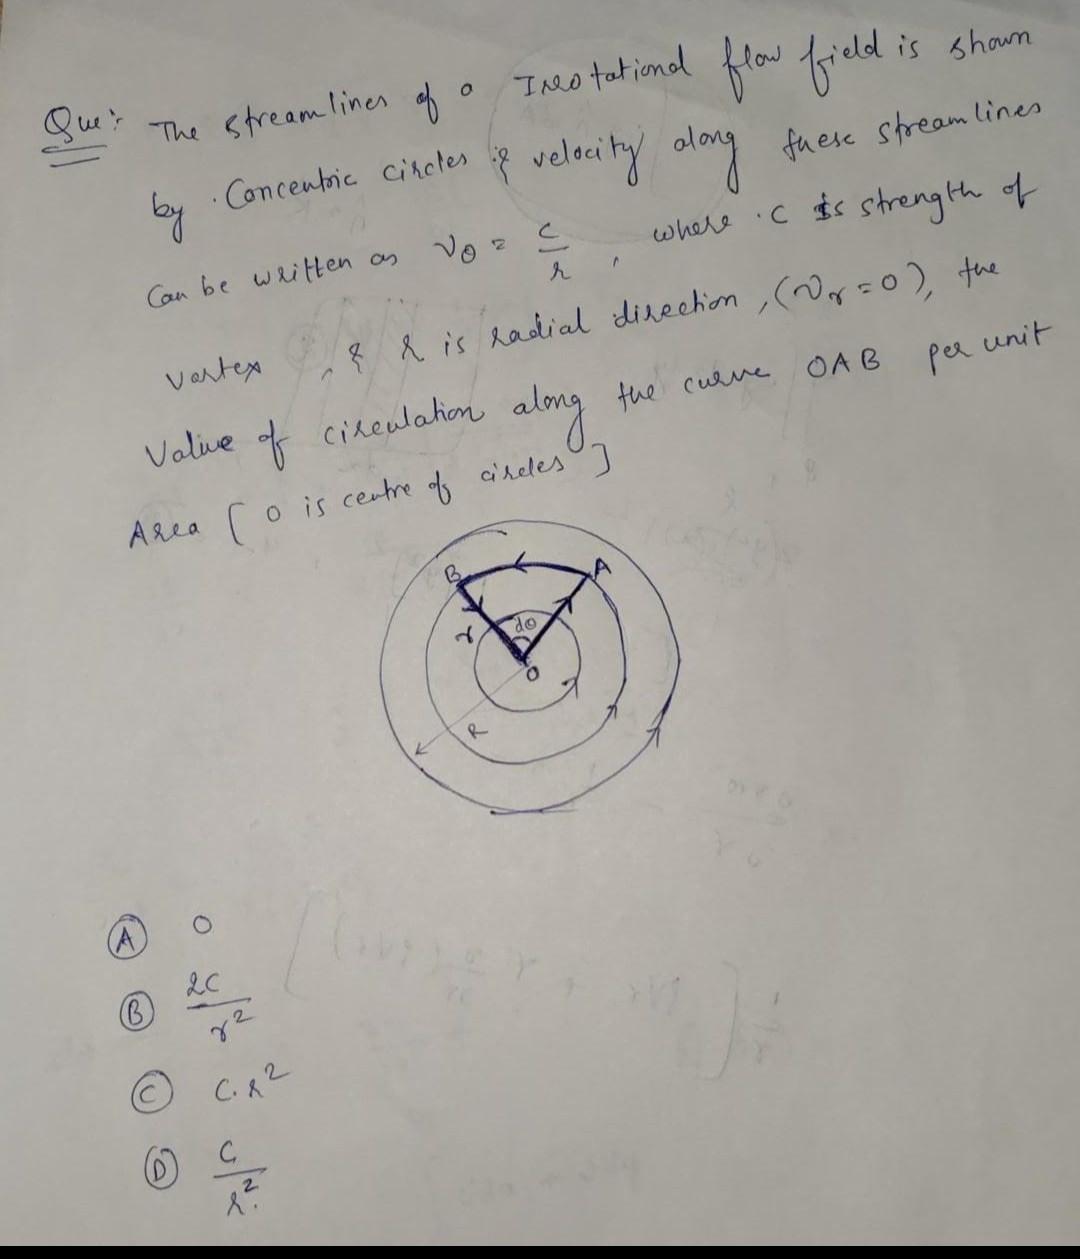 Que: The streamlines of a Irrotational flow field is shown
by . Concentric circles & velocity along these streamlines
Can be written as vθ = c/r , where . C is strength of
vortex , & r is radial direction , (vr = 0), the
Value of circulation along the curve OAB per unit
Area [ O is centre of circles ]
B A
dθ
r
O
R
A 0
B 2C/r²
C C.r²
D C/r².